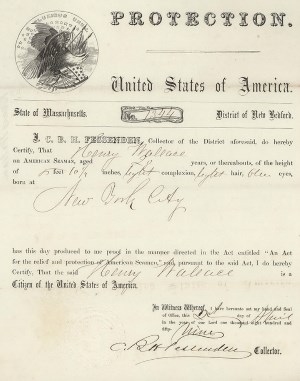 PROTECTION.
United States of America.
State of Massachusetts.
District of New Bedford.
I, C. B. H. FESSENDEN, Collector of the District aforesaid, do hereby
Certify, That Henry Wallace
an AMERICAN SEAMAN, aged years, or thereabouts, of the height
of 5 feet 10 1/2 inches, light complexion, light hair, blue eyes,
born at
New York City
has this day produced to me proof in the manner directed in the Act entitled "An Act
for the relief and protection of American Seamen," and, pursuant to the said Act, I do hereby
Certify, That the said Henry Wallace is a
Citizen of the United States of America.
In Witness Whereof, I have hereunto set my hand and Seal
of Office, this day of April
in the year of our Lord one thousand eight hundred and
fifty nine
C B H Fessenden Collector.